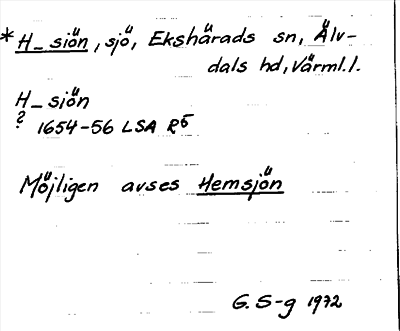 *H_siön, sjö, Ekshärads sn, Älv-
dals hd, Värml.l.
H_siön
? 1654-56 LSA R5
Möjligen avses Hemsjön
G. S-g 1972